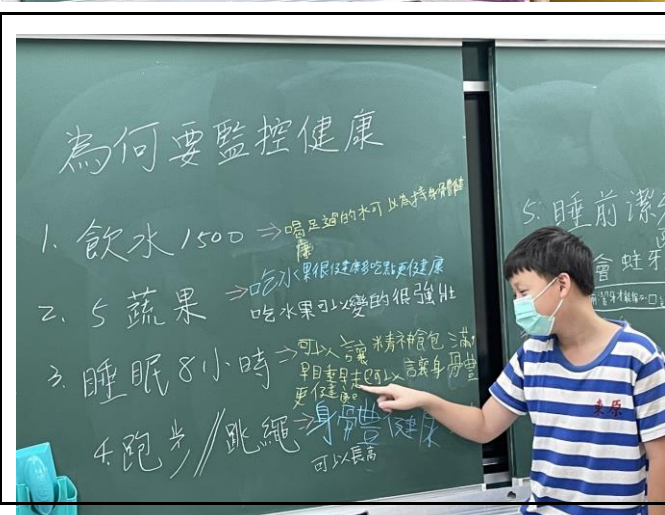 為何要監控健康
1. 飲水1500 ⇒ 喝足過的水可以為持身體健
康
2. 5蔬果 ⇒ 吃水果很健康多吃點更健康
吃水果可以變的很強壯
3. 睡眠8小時 ⇒ 可以讓精神飽包滿
早睡早起可以讓身體
更健康
4.跑步//跳繩 ⇒ 身體健康
可以長高
5. 睡前潔
會蛀牙
東原